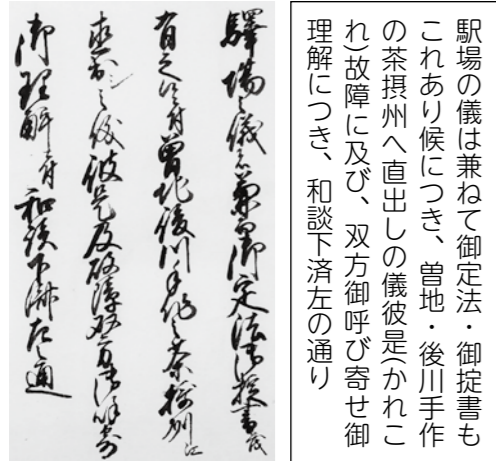 駅場の儀は兼ねて御定法・御掟書も
これあり候につき、曽地・後川手作
の茶摂州へ直出しの儀彼是(かれこ
れ)故障に及び、双方御呼び寄せ御
理解につき、和談下済左の通り
驛場之儀者兼而御定法御掟書茂
有之候ニ付曽地後川手作之茶摂州江
直出シ之儀彼是及故障双方御呼寄
御理解ニ付和談下済左之通